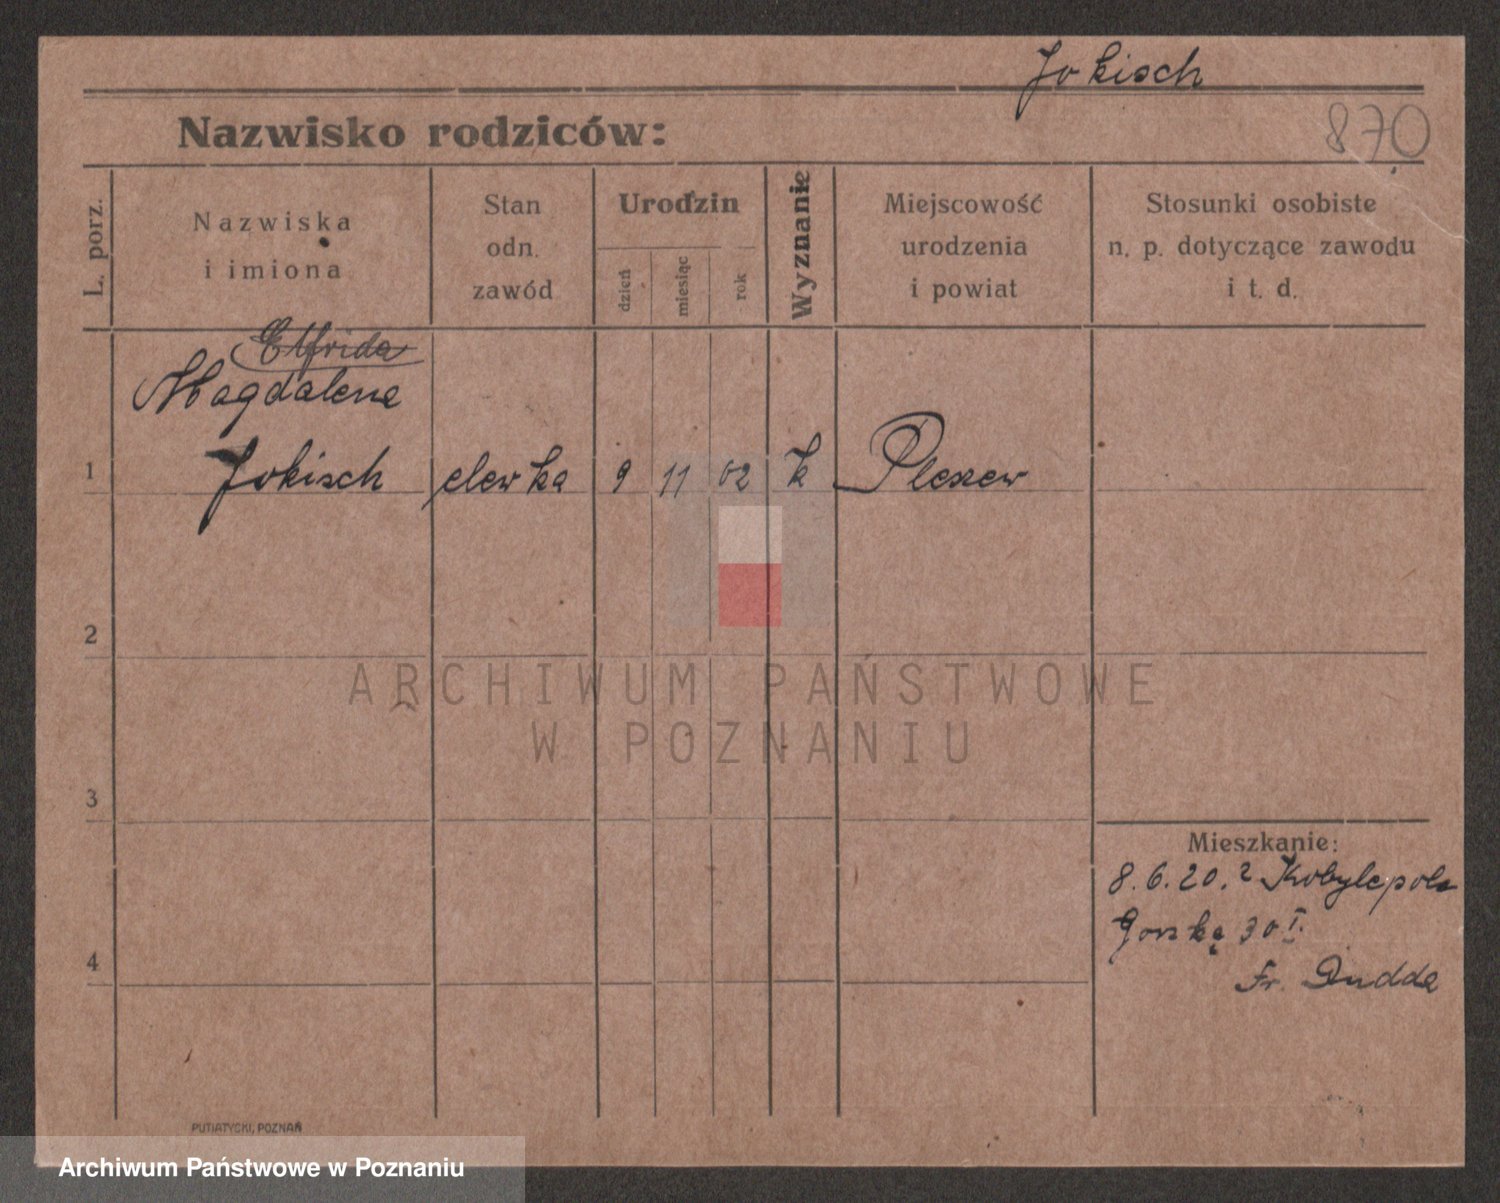 Jokisch
870
Nazwisko rodziców:
L. porz.
Nazwiska
i imiona
Stan
odn.
zawód
Urodzin
dzień
miesiąc
rok
Wyznanie
Miejscowość
urodzenia
i powiat
Stosunki osobiste
n. p. dotyczące zawodu
i t. d.
Elfrida
Magdalene
1 Jokisch elewka 9 11 02 k Pleszew
2
ARCHIWUM PAŃSTWOWE
W POZNANIU
3
Mieszkanie:
8.6.20. z Kobylepole
Gorska 30 I.
4
Fr. Dudda
PUTIATYCKI, POZNAŃ
Archiwum Państwowe w Poznaniu